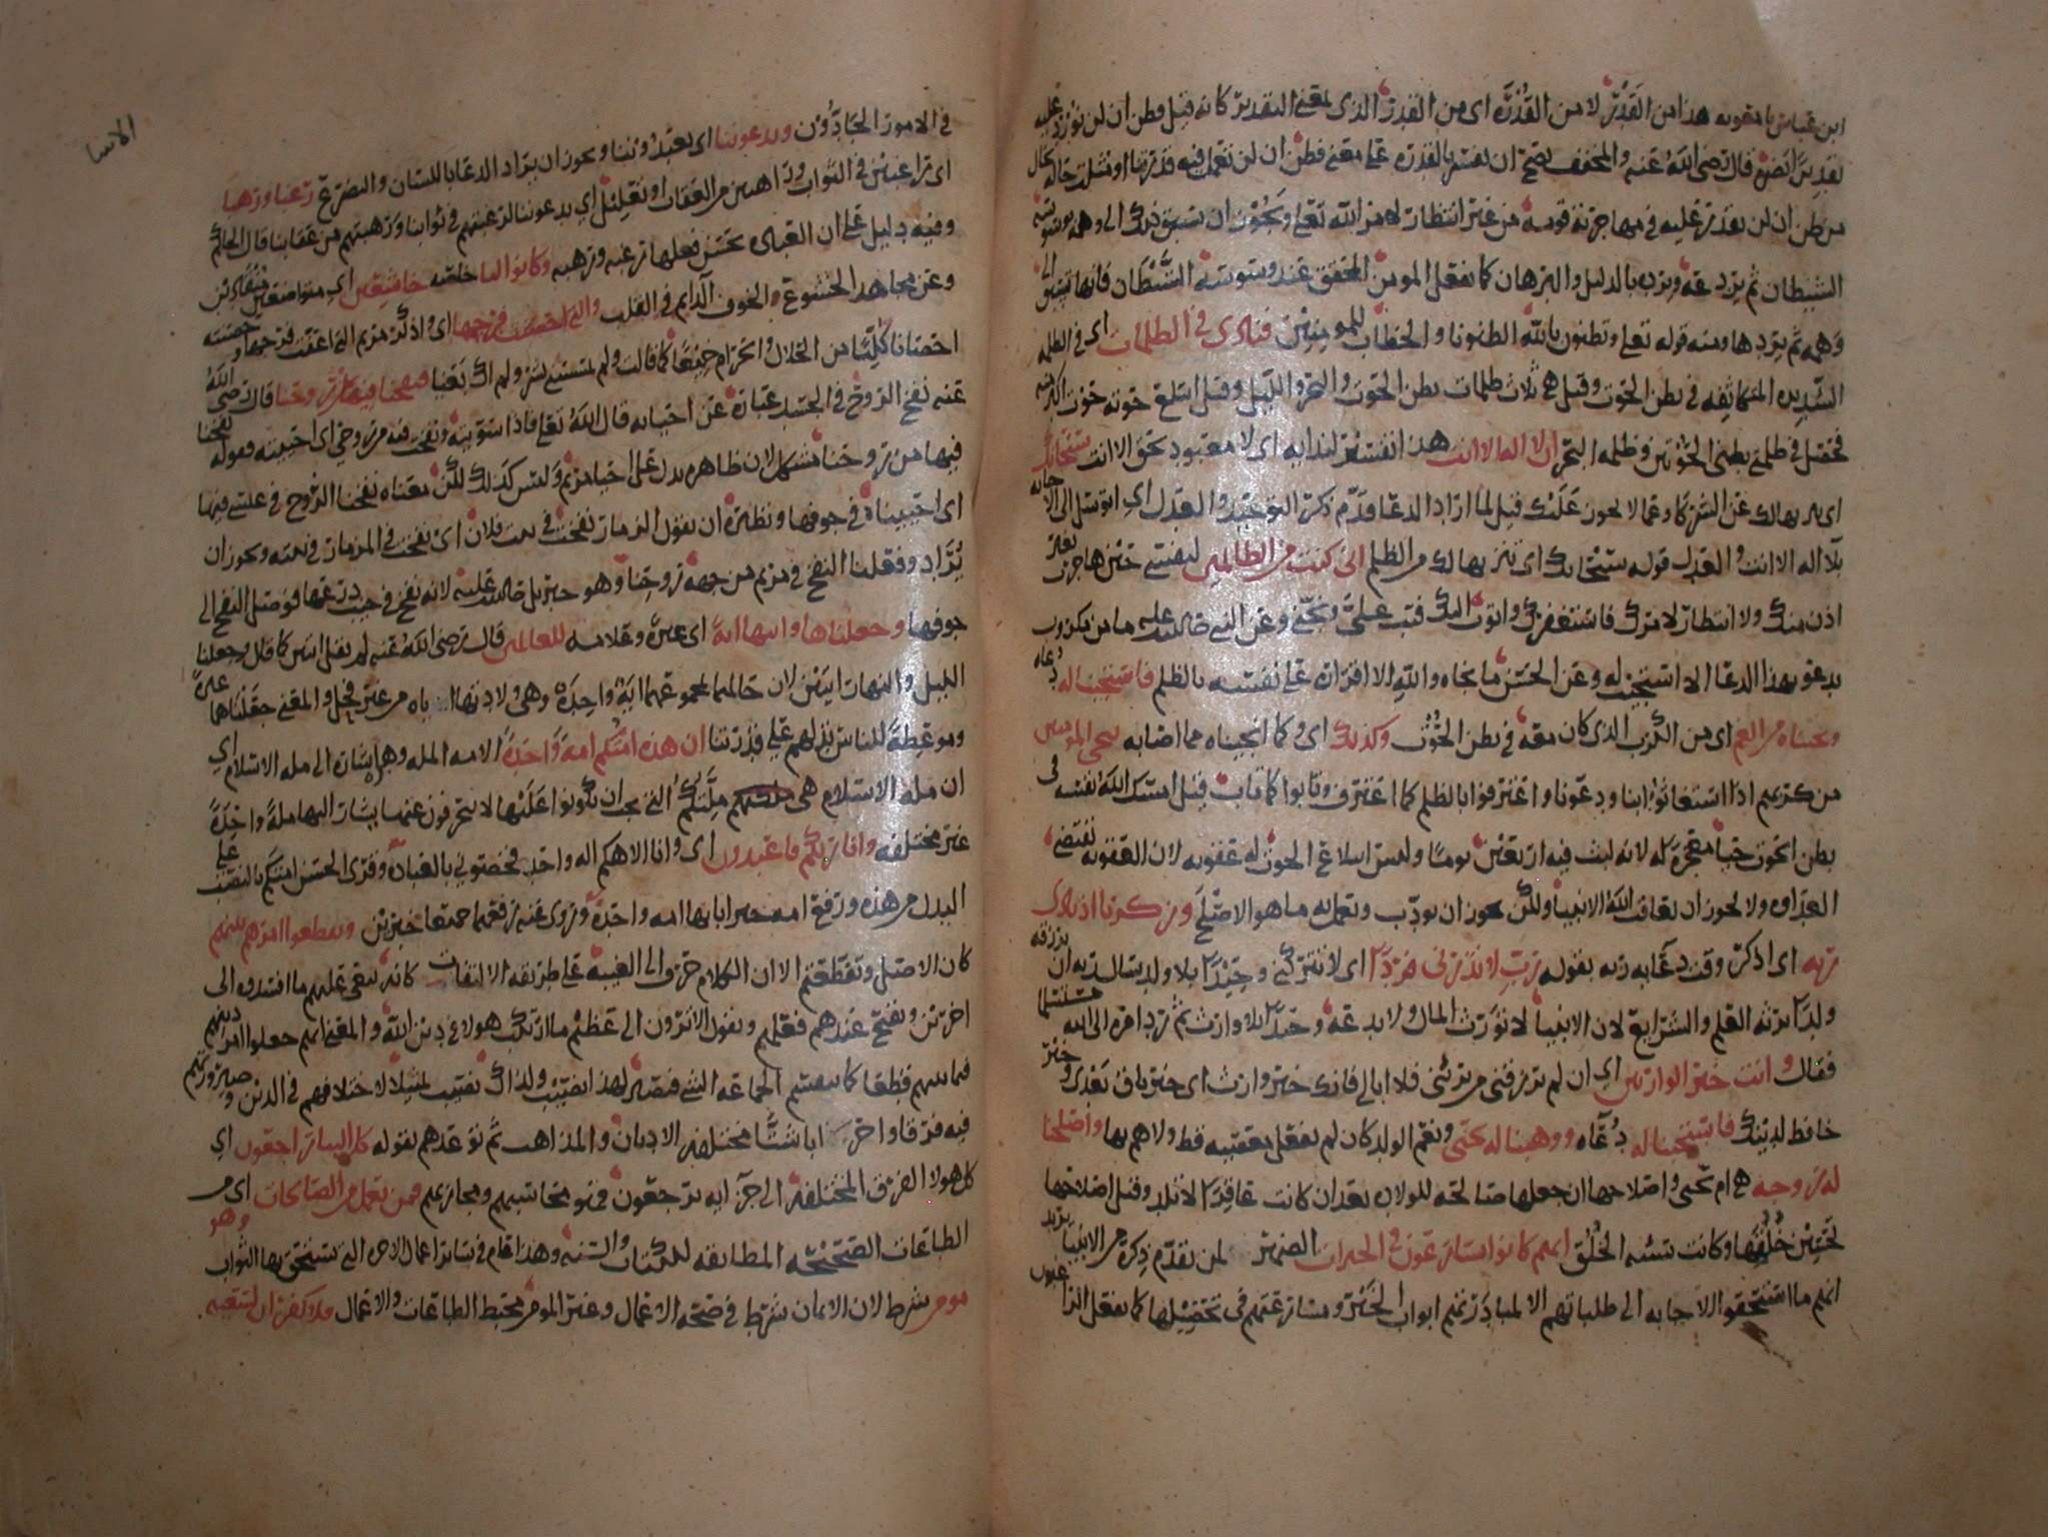 ابن عباس يا معويه هذا من القَدْر لا من القُدْرَة اى من القدر الذى بمعنى التقدير كانه قيل فظن ان لن نورد عليه
قال رضى الله عنه والمخفف يصح ان يفسر بالقدره على معنى فظن ان لن نعمل فيه قدرتنا او مثلت حاله بحال
من ظن ان لن نقدر عليه فى مهاجرته قومه من غير انتظار لامر الله تعلى ويجوز ان يسبق ذلك الى وهمه بوسوسه
الشيطان ثم يردعه ويرده بالدليل والبرهان كما يفعل المومن المحقق عند وسوسه الشيطان فانها تسبق الى
وهمه ثم يردها ومنه قوله تعلى وتظنون بالله الظنونا والخطاب للمومنين فنادى فى الظلمات اى فى الظلمه
الشديده المتكاثفه فى بطن الحوت وقيل هى ثلاث ظلمات بطن الحوت والبحر والليل وقيل ابتلع حوته حوت اكبر منه
فحصل فى ظلمتى بطنى الحوتين وظلمه البحر ان لا اله الا انت هذا تفسير لندايه اى لا معبود بحق الا انت سبحانك
اى تنزيها لك عن الشركا وعما لا يجوز عليك قيل لما اراد الدعا قدم ذكر التوحيد والعدل اى اتوسل الى الاجابه
بلا اله الا انت والعدل قوله سبحانك اى تنزيها لك من الظلم انى كنت من الظالمين لنفسى حين هاجرت بغير
اذن منك ولا انتظار لامرك فاستغفرك واتوب اليك فتب على ونجنى وعن النبى صلى الله عليه ما من مكروب
يدعو بهذا الدعا الا استجيب له وعن الحسن ما نجاه والله الا اقراره على نفسه بالظلم فاستجبنا له دعاه
ونجيناه من الغم اى من الكرب الذى كان معه فى بطن الحوت وكذلك اى وكما انجيناه مما اصابه ننجى المومنين
من كربهم اذا استغاثوا بنا ودعونا واعترفوا بالظلم كما اعترف وتابوا كما تاب قيل امسك الله نفسه فى
بطن الحوت حيا معجزة له لانه لبث فيه اربعين يوما وليس ابتلاع الحوت له عقوبه لان العقوبه تقتضى
العداوه ولا يجوز ان يعاقب الله الانبيا ولكن يجوز ان يودب ويعمل به ما هو الاصلح وزكريا اذ نادى
ربه اى اذكر وقت دعايه ربه بقوله رب لا تذرنى فردا اى لا تتركنى وحيدا بلا ولد يسال ربه ان يرزقه
ولدا يرثه العلم والشرايع لان الانبيا لا تورث المال ولا يدعه وحيدا بلا وارث ثم رد امره الى الله مستسلما
فقال وانت خير الوارثين اى ان لم ترزقنى من يرثنى فلا ابالى فانك خير وارث اى خير باق بعدى وخير
حافظ لدينك فاستجبنا له دعاه ووهبنا له يحيى ونعم الولد كان لم يفعل معصيه قط ولا هم بها واصلحنا
له زوجه هى ام يحيى واصلاحها ان جعلها صالحه للولاد بعد ان كانت عاقرا لا تلد وقيل اصلاحها
تحسين خلقها وكانت سيئه الخلق انهم كانوا يسارعون فى الخيرات الضمير لمن تقدم ذكره من الانبيا يريد
انهم ما استحقوا الاجابه الى طلباتهم الا لمبادرتهم ابواب الخير ومسارعتهم فى تحصيلها كما يفعل الراغبون
الاسا
فى الامور الجادون ويدعوننا اى يعبدوننا ويجوز ان يراد الدعا باللسان والتضرع رغبا ورهبا
اى راغبين فى الثواب وراهبين من العقاب او تعليل اى يدعوننا لرغبتهم فى ثوابنا ورهبتهم من عقابنا قال الحاكم
وفيه دليل على ان العباده يحسن فعلها رغبه ورهبه وكانوا لنا خاصه خاشعين اى متواضعين
وعن مجاهد الخشوع الخوف الدايم فى القلب والتى احصنت فرجها اى واذكر مريم التى اعفت فرجها وحصنته
احصانا كليا من الحلال والحرام جميعا كما قالت ولم يمسسنى بشر ولم اك بغيا فنفخنا فيها من روحنا قال رضى الله
عنه نفخ الروح فى الجسد عباره عن احيايه قال الله تعلى فاذا سويته ونفخت فيه من روحى اى احييته فقوله نفخنا
فيها من روحنا مشكل لان ظاهره يدل على احيا مريم وليس كذلك لكن معناه نفخنا الروح فى عيسى فيها
اى احييناه فى جوفها ونظيره ان يقول الزمار نفخت فى بيت فلان اى نفخت فى المزمار فى بيته ويجوز ان
يراد وفعلنا النفخ فى مريم من جهه روحنا وهو جبريل صلى الله عليه لانه نفخ فى جيب درعها فوصل النفخ الى
جوفها وجعلناها وابنها اية اى عبرة وعلامه للعالمين قال رضى الله عنه لم يقل ايتين كما قال وجعلنا
الليل والنهار ايتين لان حالهما بمجموعهما اية واحدة وهى ولادتها اياه من غير فحل والمعنى جعلناها عبرة
وموعظة للناس تدلهم على قدرتنا ان هذه امتكم امة واحدة الامه المله وهى اشاره الى مله الاسلام اى
ان مله الاسلام هى ملتكم التى يجب ان تكونوا عليها لا تنحرفون عنها يشار اليها ملة واحدة
غير مختلفه وانا ربكم فاعبدون اى وانا الاهكم اله واحد فخصونى بالعباده وقرى الحسن امتكم بالنصب على
البدل من هذه ورفع امه خبرا بانها امه واحدة وروى عنه رفعهما جميعا خبرين وتقطعوا امرهم بينهم
كان الاصل وتقطعتم الا ان الكلام حرف الى الغيبه على طريقه الالتفات كانه ينعى عليهم ما افسدوه الى
اخرين ويقبح عندهم فعلهم ويقول الا ترون الى عظيم ما ارتكب هولاء فى دين الله والمعنى انهم جعلوا امر دينهم
فيما بينهم قطعا كما يقتسم الجماعه الشى فيصير لهذا نصيب ولذاك نصيب تمثيلا لاختلافهم فى الدين وصيرورتهم
فيه فرقا واحزابا شتا مختلفى الاديان والمذاهب ثم توعدهم بقوله كل الينا راجعون اى
كل هولا الفرق المختلفه الى جزايه يرجعون فهو محاسبهم ومجازيهم فمن يعمل من الصالحات اى من
الطاعات الصحيحه المطابقه للكتاب والسنه وهذا عام فى ساير اعمال الاخره التى يستحق بها الثواب وهو
مومن شرط لان الايمان شرط فى صحه الاعمال وغير المومن محبط الطاعات والاعمال فلا كفران لسعيه